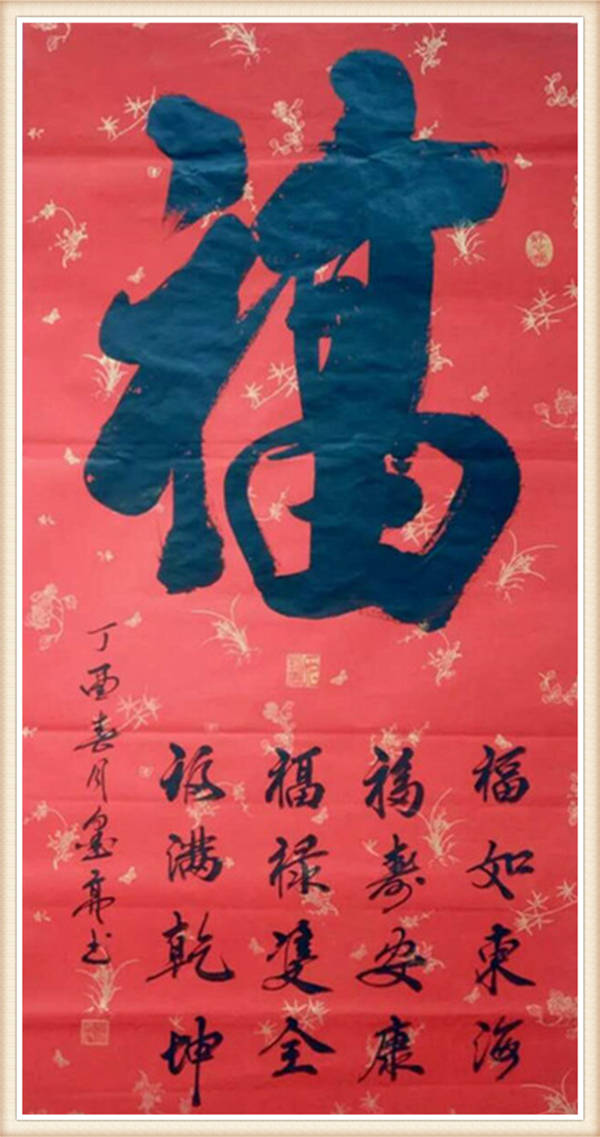 福
福如東海
福壽安康
福祿雙全
福满乾坤
丁酉春月金亮书